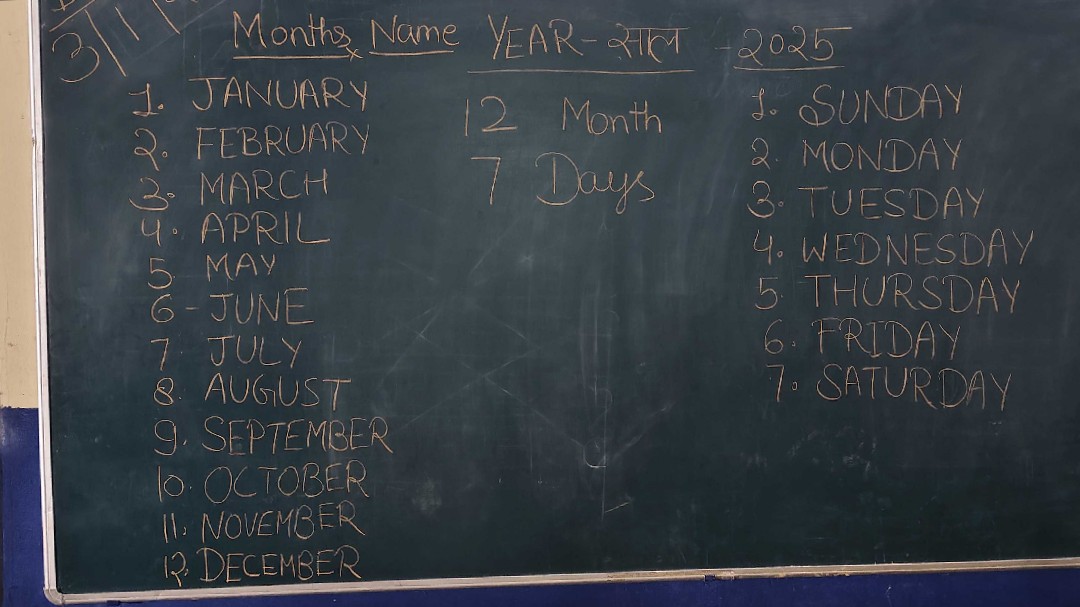 3/11
Months Name YEAR - साल - 2025
1. JANUARY
2. FEBRUARY
3. MARCH
4. APRIL
5. MAY
6 - JUNE
7. JULY
8. AUGUST
9. SEPTEMBER
10. OCTOBER
11. NOVEMBER
12. DECEMBER
12 Month
7 Days
1. SUNDAY
2. MONDAY
3. TUESDAY
4. WEDNESDAY
5. THURSDAY
6. FRIDAY
7. SATURDAY